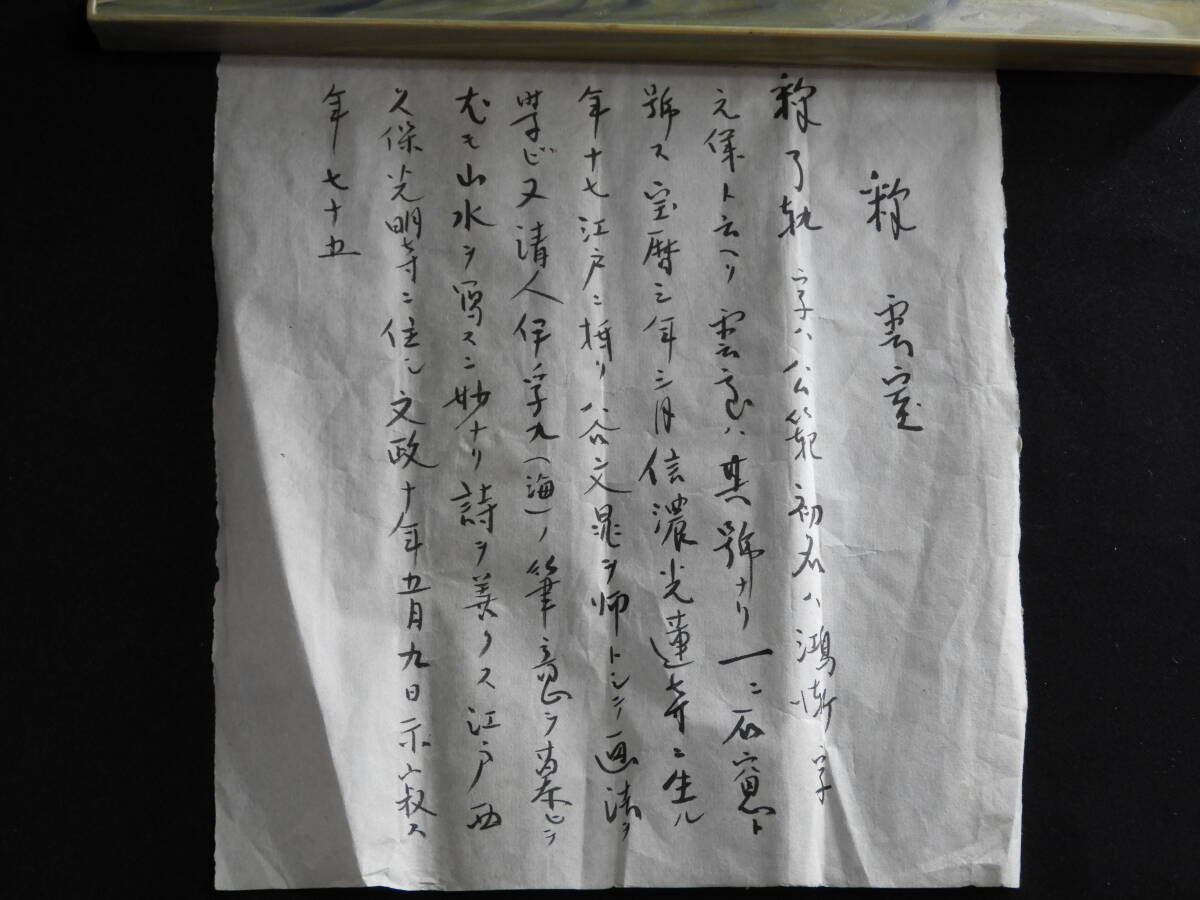 釈 雲室
釈了軌 字ハ公範 初名ハ鴻漸 字
元儀ト云ヘリ 雲室ハ其號ナリ 一ニ石窓ト
號ス 宝暦三年三月信濃光蓮寺ニ生ル
年十七江戸ニ移リ 谷文晁ヲ師トシテ画法ヲ
学ビ又清人伊孚九(海)ノ筆意ヲ慕ヒテ
尤モ山水ヲ写スニ妙ナリ 詩ヲ善クス 江戸西
久保光明寺ニ住シ 文政十年五月九日示寂ス
年七十五